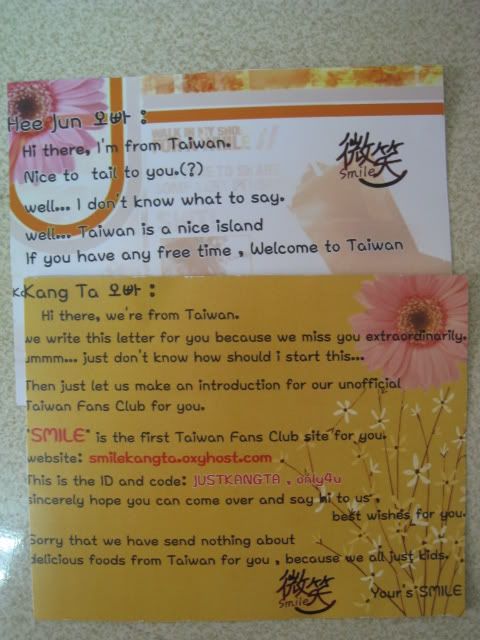 Hee Jun 오빠 :
Hi there, I'm from Taiwan.
Nice to tail to you.(?)
well... I don't know what to say.
well... Taiwan is a nice island
If you have any free time , Welcome to Taiwan
微笑
Smile
Kang Ta 오빠 :
Hi there, we're from Taiwan.
we write this letter for you because we miss you extraordinarily.
ummm... just don't know how should i start this...
Then just let us make an introduction for our unofficial
Taiwan Fans Club for you.
"SMILE" is the first Taiwan Fans Club site for you.
website: smilekangta.oxyhost.com .
This is the ID and code: JUSTKANGTA , only4u
sincerely hope you can come over and say hi to us ,
best wishes for you.
Sorry that we have send nothing about
delicious foods from Taiwan for you , because we all just kids.
微笑
Smile
Your's SMILE